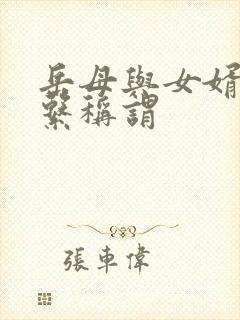 岳母與女婿
繫稱謂
張車偉